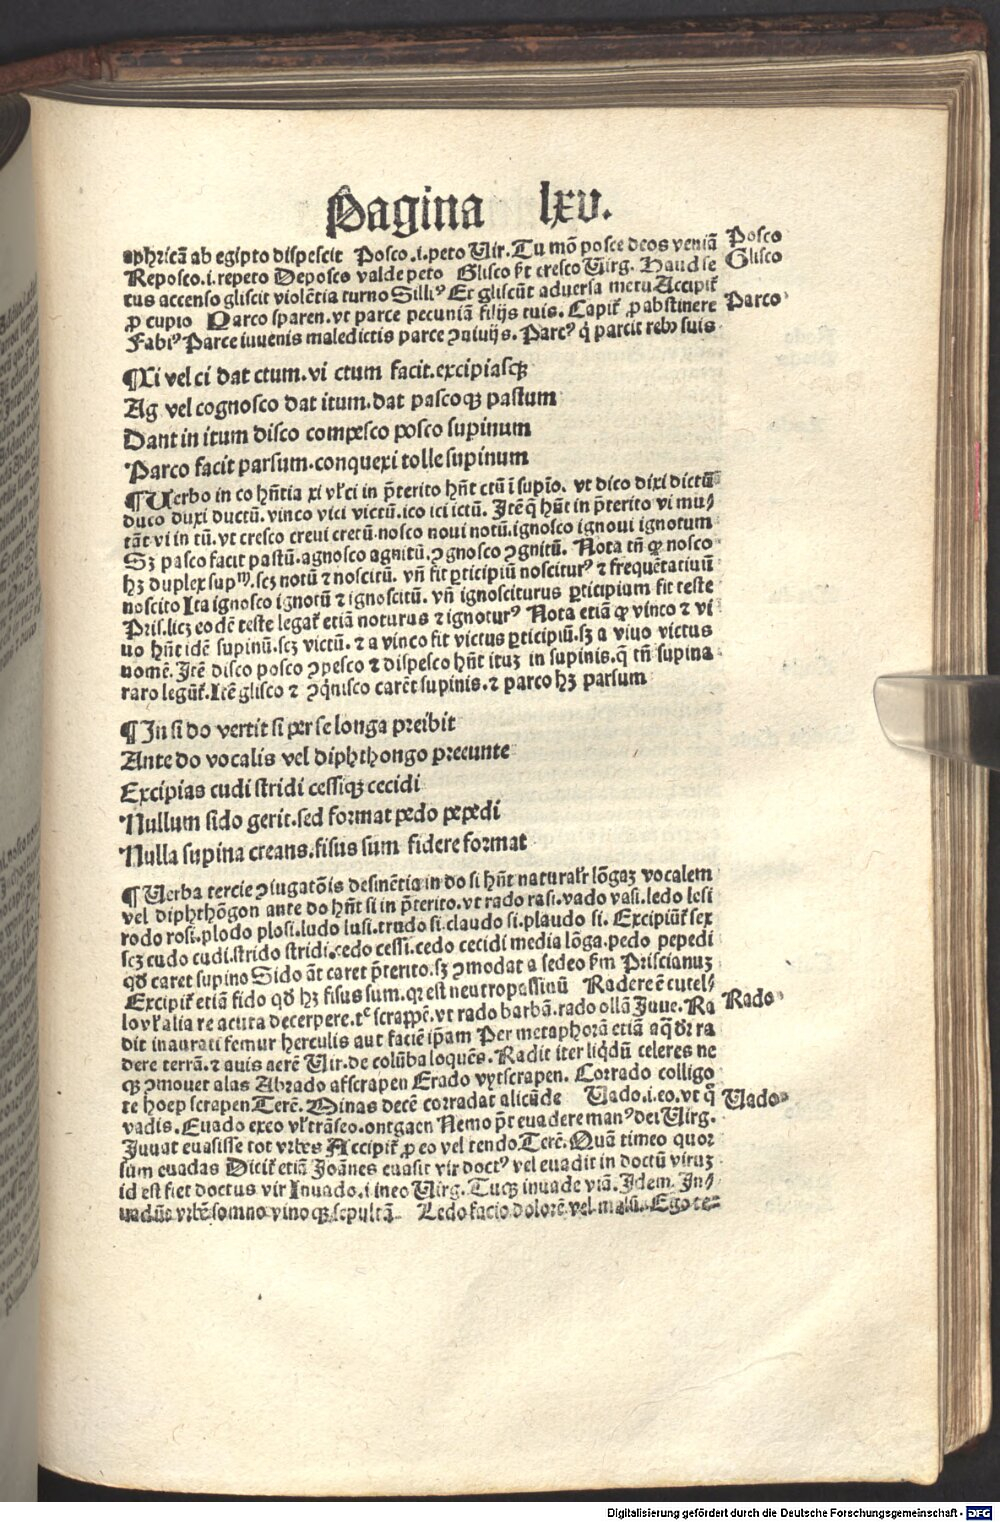 Pagina lxv.
aphricā ab egipto dispescit Posco.i.peto Uir.Tu mō posce deos veniā Posco
Reposco.i.repeto Deposco valde peto Glisco p̄t cresco Uirg. Haud se Glisco
cus accenso gliscit violētia turno Silliꝰ Et gliscūt aduersa metu Accipit̄
ꝓ cupio Parco sparen.vt parce pecuniā filijs tuis. Capit̄ ꝓ abstinere Parco
Fabiꝰ Parce iuvenis maledictis parce ꝯuiuijs. Parcꝰ q̇ parcit rebꝰ suis
¶Xi vel ci dat ctum.vi ctum facit.excipiasqꝫ
Ag vel cognosco dat itum.dat pascoqꝫ pastum
Dant in itum disco compesco posco supinum
Parco facit parsum.conquexi tolle supinum
¶Uerbo in co hn̄tia xi vl̓ ci in p̄terito hn̄t ctū ī supīo. vt dico dixi dictū
duco duxi ductū. vinco vici victū.ico ici ictū. Jtē q̇ hn̄t in p̄terito vi mu⸗
tāt vi in tū. vt cresco creui cretū.nosco noui notū.ignosco ignoui ignotum
Sꝫ pasco facit pastū.agnosco agnitū.ꝯgnosco ꝯgnitū. Nota tn̄ ꝙ nosco
hꝫ duplex sup.scꝫ notū ⁊ noscitū. vn̄ fit ꝑticipiū nosciturꝰ ⁊ frequētatiuū
noscito Ita ignosco ignotū ⁊ ignoscitū. vn̄ ignosciturus ꝑticipium fit teste
Pris.licꝫ eodē teste legat̄ etiā noturus ⁊ ignoturꝰ Nota etiā ꝙ vinco ⁊ vi
uo hn̄t idē supinū.scꝫ victū. ⁊ a vinco fit victus ꝑticipiū.sꝫ a viuo victus
nomē. Jtē disco posco ꝯpesco ⁊ dispesco hn̄t ituꝫ in supinis.q̄ tn̄ supina
raro legūt̄.Itē glisco ⁊ ꝯq̇nisco carēt supinis.⁊ parco hꝫ parsum
¶Jn si do vertit si per se longa preibit
Ante do vocalis vel diphthongo preeunte
Excipias cudi stridi cessiqꝫ cecidi
Nullum sido gerit.sed format pedo pepedi
Nulla supina creans.fisus sum fidere format
¶Uerba tercie ꝯiugatōis desinētia in do si hn̄t naturalr̄ lōgaꝫ vocalem
vel diphthōgon ante do hn̄t si in p̄terito. vt rado rasi.vado vasi.ledo lesi
rodo rosi.plodo plosi.ludo lusi.trudo si.claudo si.plaudo si. Excipiūt̄ sex
scꝫ cudo cudi.strido stridi.cedo cessi.cedo cecidi media lōga.pedo pepedi
qđ caret supino Sido āt caret p̄terito.sꝫ ꝯmodat a sedeo ẜm Priscianuꝫ
Excipit̄ etiā fido qđ hꝫ fisus sum.qꝛ est neutropassiuū Radere ē cutel⸗
lo vl̓ alia re acuta decerpere.tᵉ scrappē.vt rado barbā.rado ollā Juue. Ra Rado
dit inaurati femur herculis aut faciē ip̄am Per metaphorā etiā aq̄ dr̄ ra
dere terrā.⁊ auis aerē Uir.de colūba loquēs. Radit iter liq̇dū celeres ne
qꝫ ꝯmouet alas Abrado afscrapen Erado vytscrapen. Corrado colligo
te hoep scrapen Terē. Minas decē corradat alicūde Uado.i.eo.vt q̄ Uado
vadis. Euado exeo vl̓ trāseo.ontgaen Nemo p̄t euadere manꝰ dei Uirg.
Juuat euasisse tot vrbes Accipit̄ ꝓ eo vel tendo Terē.Quā timeo quor
sum euadas Dicit̄ etiā Joānes euasit vir doctꝰ vel euadit in doctū viruꝫ
id est fiet doctus vir Inuado.i ineo Uirg. Tuqꝫ inuade viā. Jdem Jn⸗
uadūt vrbē somno vinoqꝫ sepultā Ledo facio dolorē vel malū. Ego te
Digitalisierung gefördert durch die Deutsche Forschungsgemeinschaft - DFG